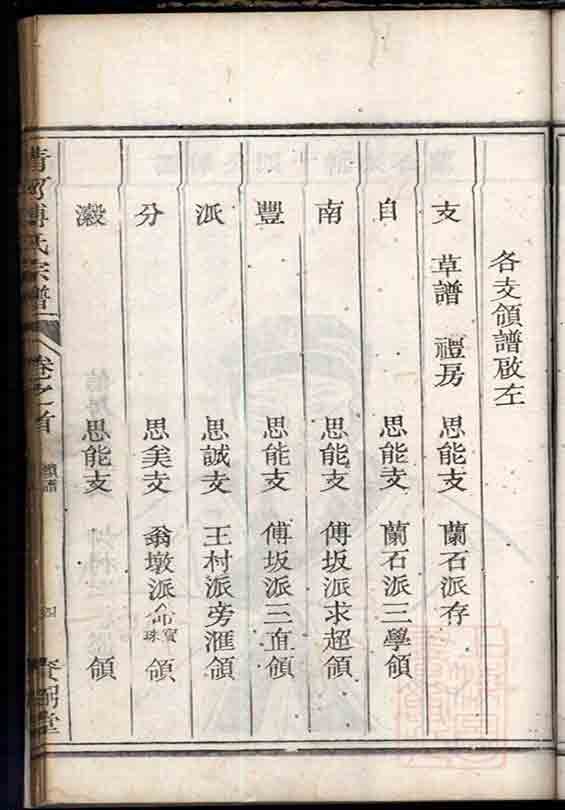 各支領譜啟左
支 草譜 禮房 思能支 蘭石派存
自 思能支 蘭石派三學領
南 思能支 傅坂派求超領
豐 思能支 傅坂派三直領
派 思誠支 王村派旁滙領
分 思美支 翁墩派 命寶珠 領
瀫 思能支 領
清河傅氏宗譜 卷之首 領譜 四 賚弼堂